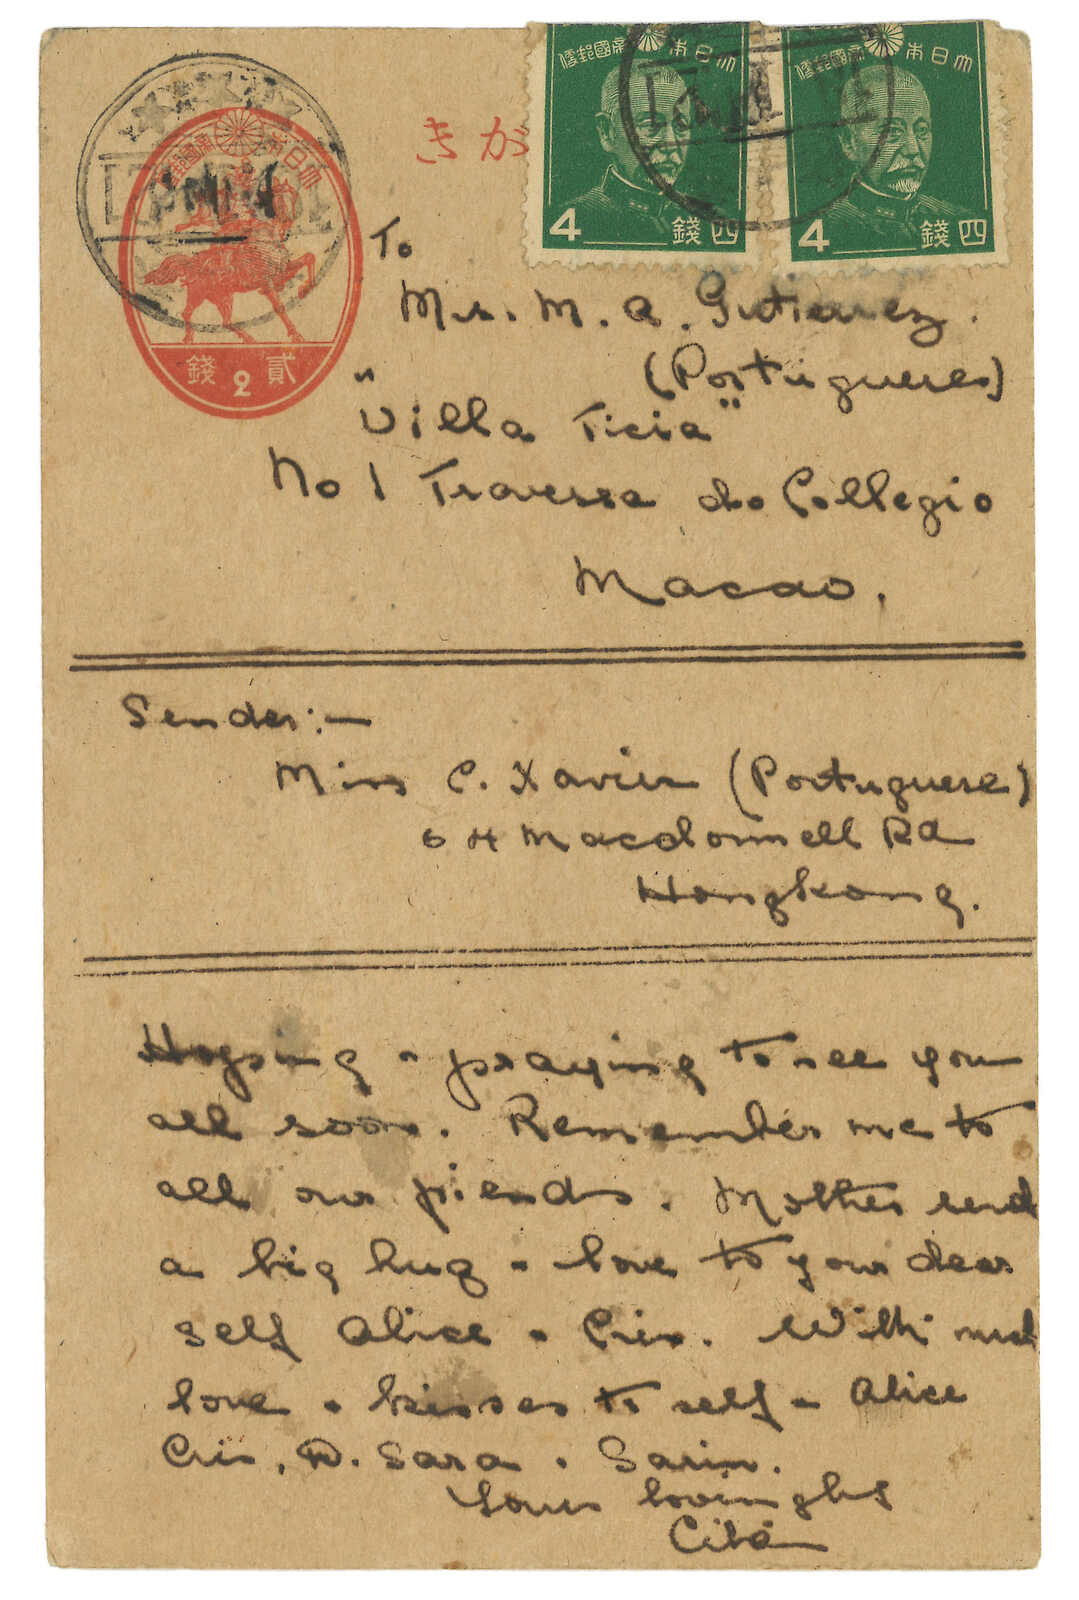 大日本帝國郵便
貳 2 錢
きが
大日本帝國郵便
4 錢四
大日本帝國郵便
4 錢四
To
Mrs. M. A. Gutierrez.
(Portuguese)
"Villa Ticia"
No 1 Travessa do Collegio
Macao.
Sender:—
Miss C. Xavier (Portuguese)
64 Macdonnell Rd
Hongkong.
Hoping & praying to see you
all soon. Remember me to
all our friends. Mother send
a big hug & love to your dear
self Alice & Cris. With much
love & kisses to self & Alice
Cris, D. Sara & Sarin.
Yours lovingly